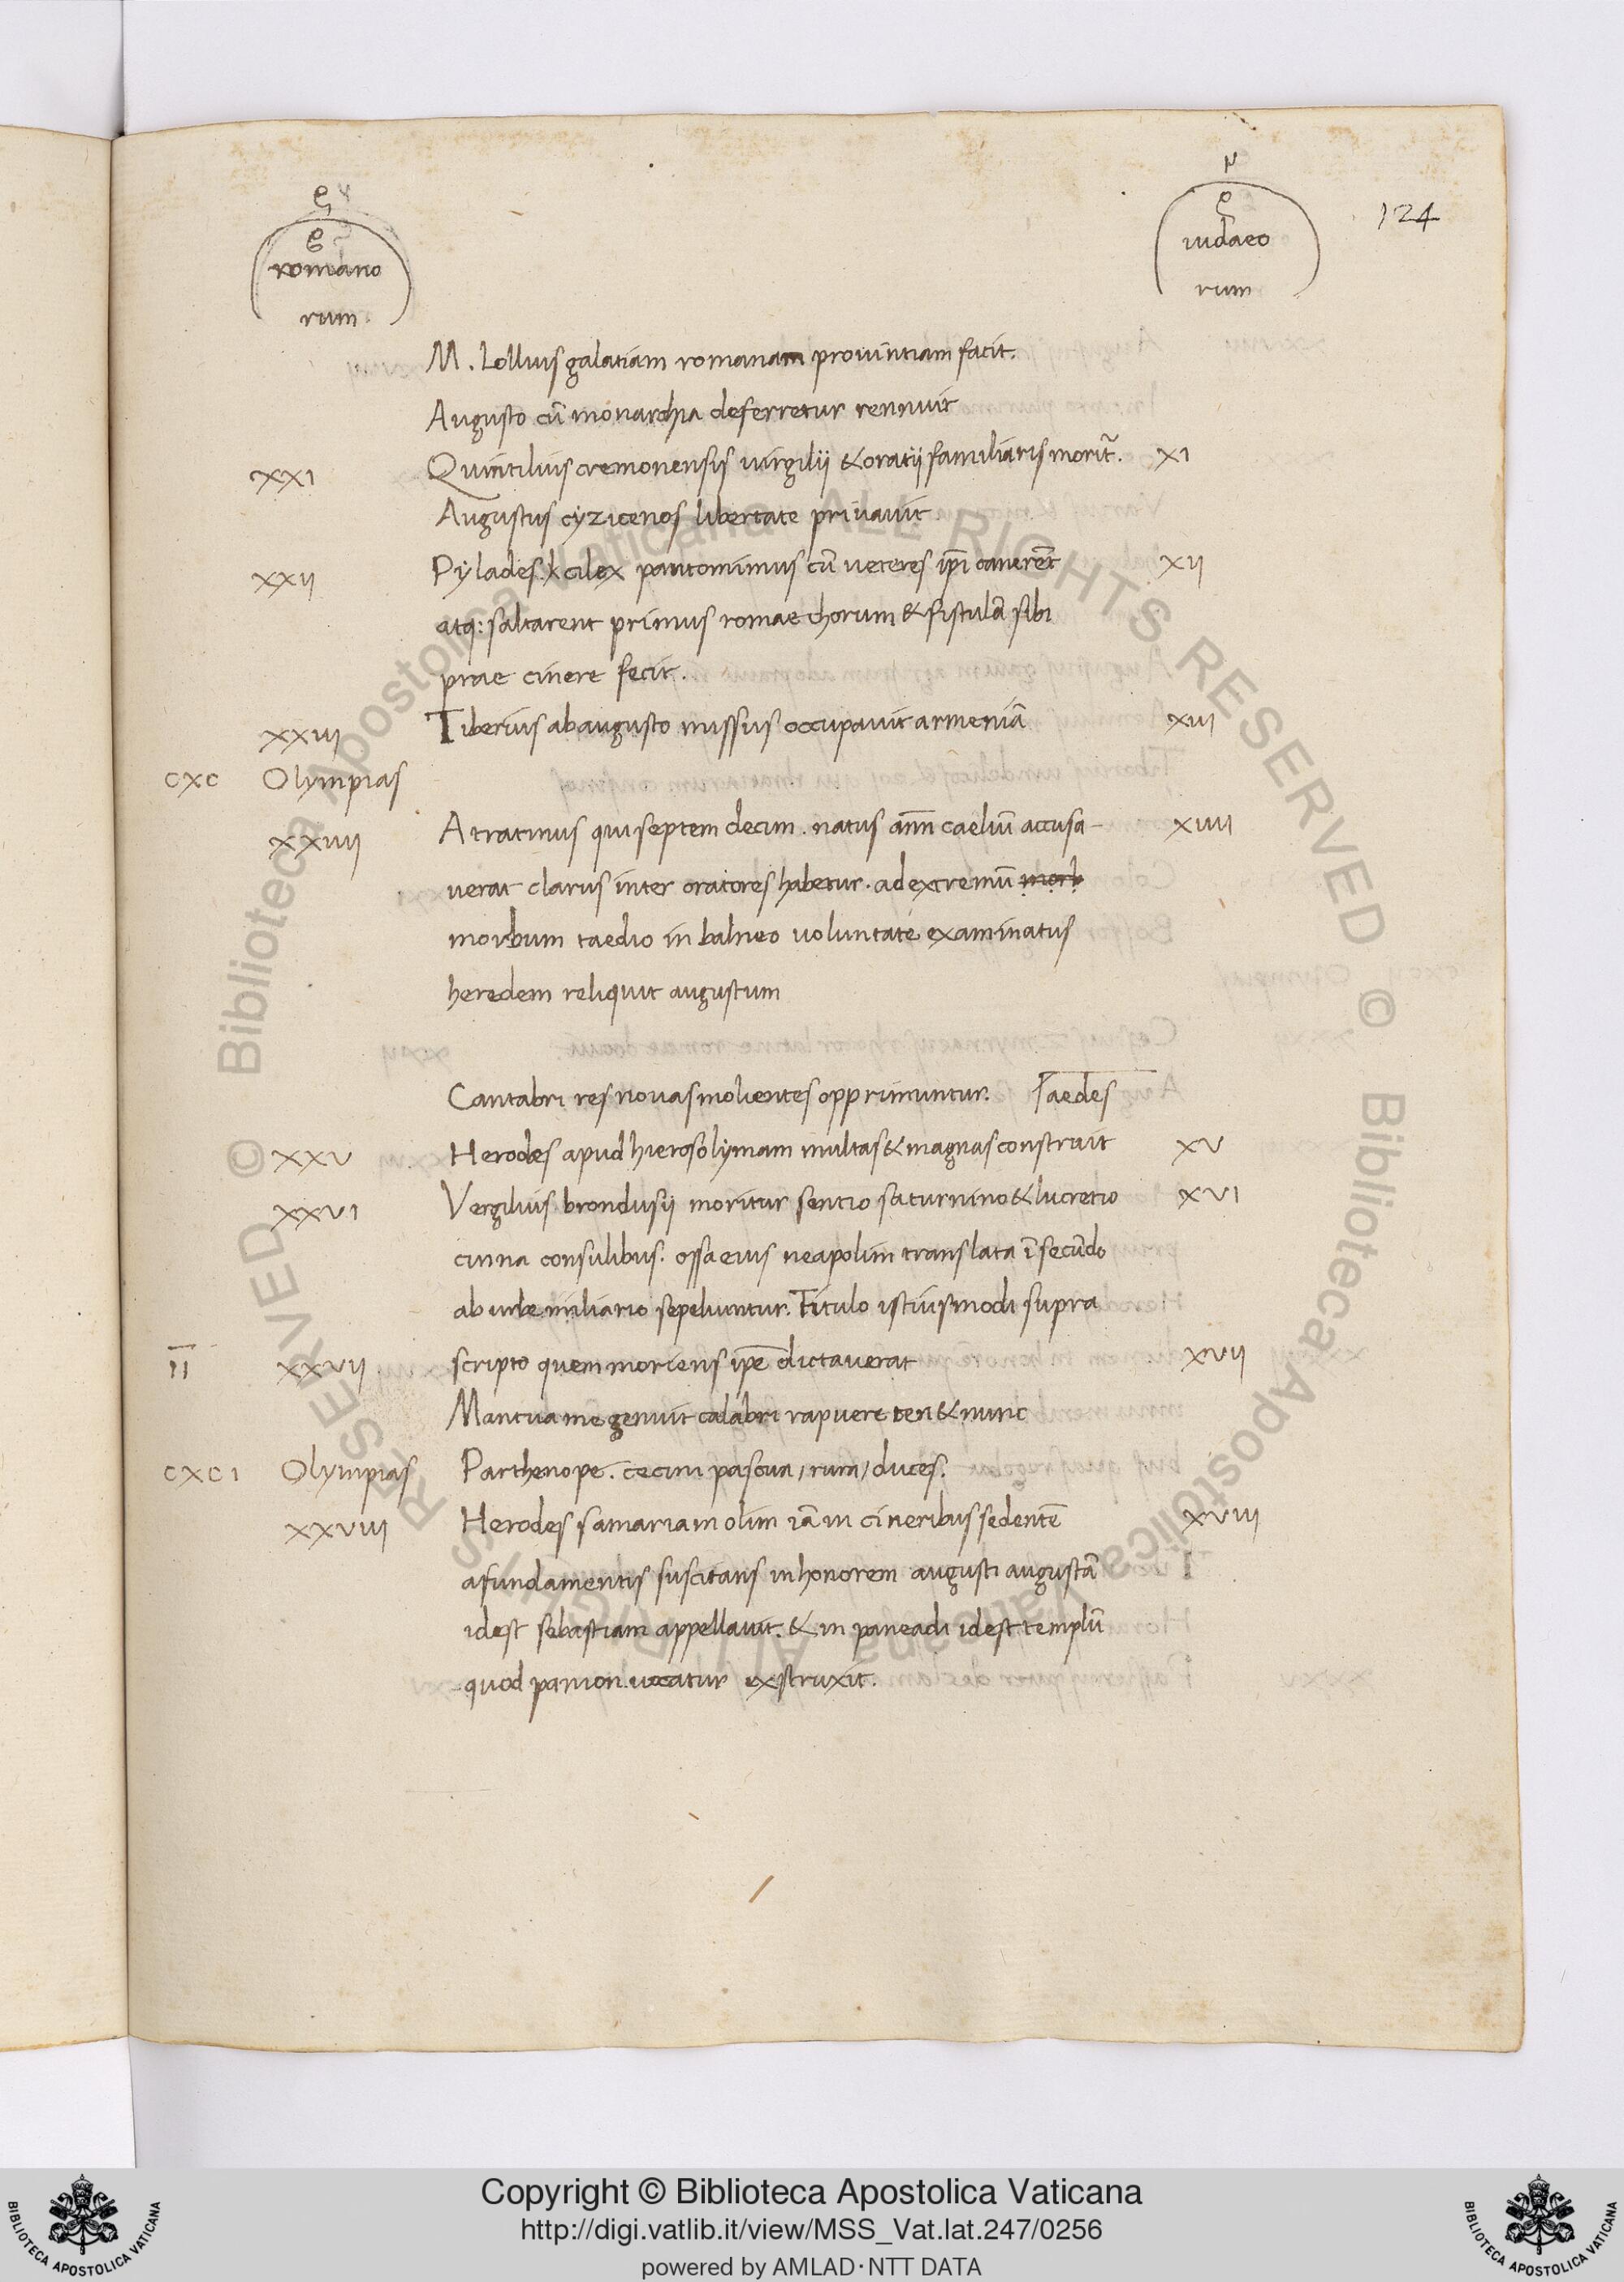 124
romano
rum
iudaeo
rum
M. Lollius galatiam romanam prouintiam facit.
Augusto cū monarchia deferretur rennuit
XXI Quintilius cremonensis uirgilii & oratii familiaris morit̃. XI
Augustus cyzicenos libertate priuauit
XXII Pylades cilex pantomimus cū ueteres ip̄i canerēt XII
atq: saltarent primus romae chorum & fistulā sibi
prae cinere fecit.
XXIII Tiberius ab augusto missus occupauit armeniā XIII
CXC Olympias
XXIIII Atratinus qui septem decim. natus ann̄ caeliū accusa- XIIII
uerat clarus inter oratores habetur. ad extremū morb
morbum taedio in balneo uoluntate examinatus
heredem reliquit augustum
Cantabri res nouas molientes opprimuntur. aedes
XXV Herodes apud hierosolymam multas & magnas construit XV
XXVI Vergilius brondusii moritur sentio saturnino & lucretio XVI
cinna consulibus. ossa eius neapolim translata ī secūdo
ab urbe miliario sepeliuntur. Titulo istiusmodi supra
II XXVII scripto quem moriens ip̄e dictauerat XVII
Mantua me genuit calabri rapuere ten & nunc
CXCI Olympias Parthenope. cecini pascua, rura, duces.
XXVIII Herodes samariam olim iā in cineribus sedentē XVIII
a fundamentis suscitans in honorem augusti augustā
idest sebastiam appellauit. & in paneadi idest templū
quod panion uocatur exstruxit.
© Biblioteca Apostolica Vaticana ALL RIGHTS RESERVED © Biblioteca Apostolica Vaticana ALL RIGHTS RESERVED
Copyright © Biblioteca Apostolica Vaticana
http://digi.vatlib.it/view/MSS_Vat.lat.247/0256
powered by AMLAD·NTT DATA
BIBLIOTECA APOSTOLICA VATICANA
BIBLIOTECA APOSTOLICA VATICANA